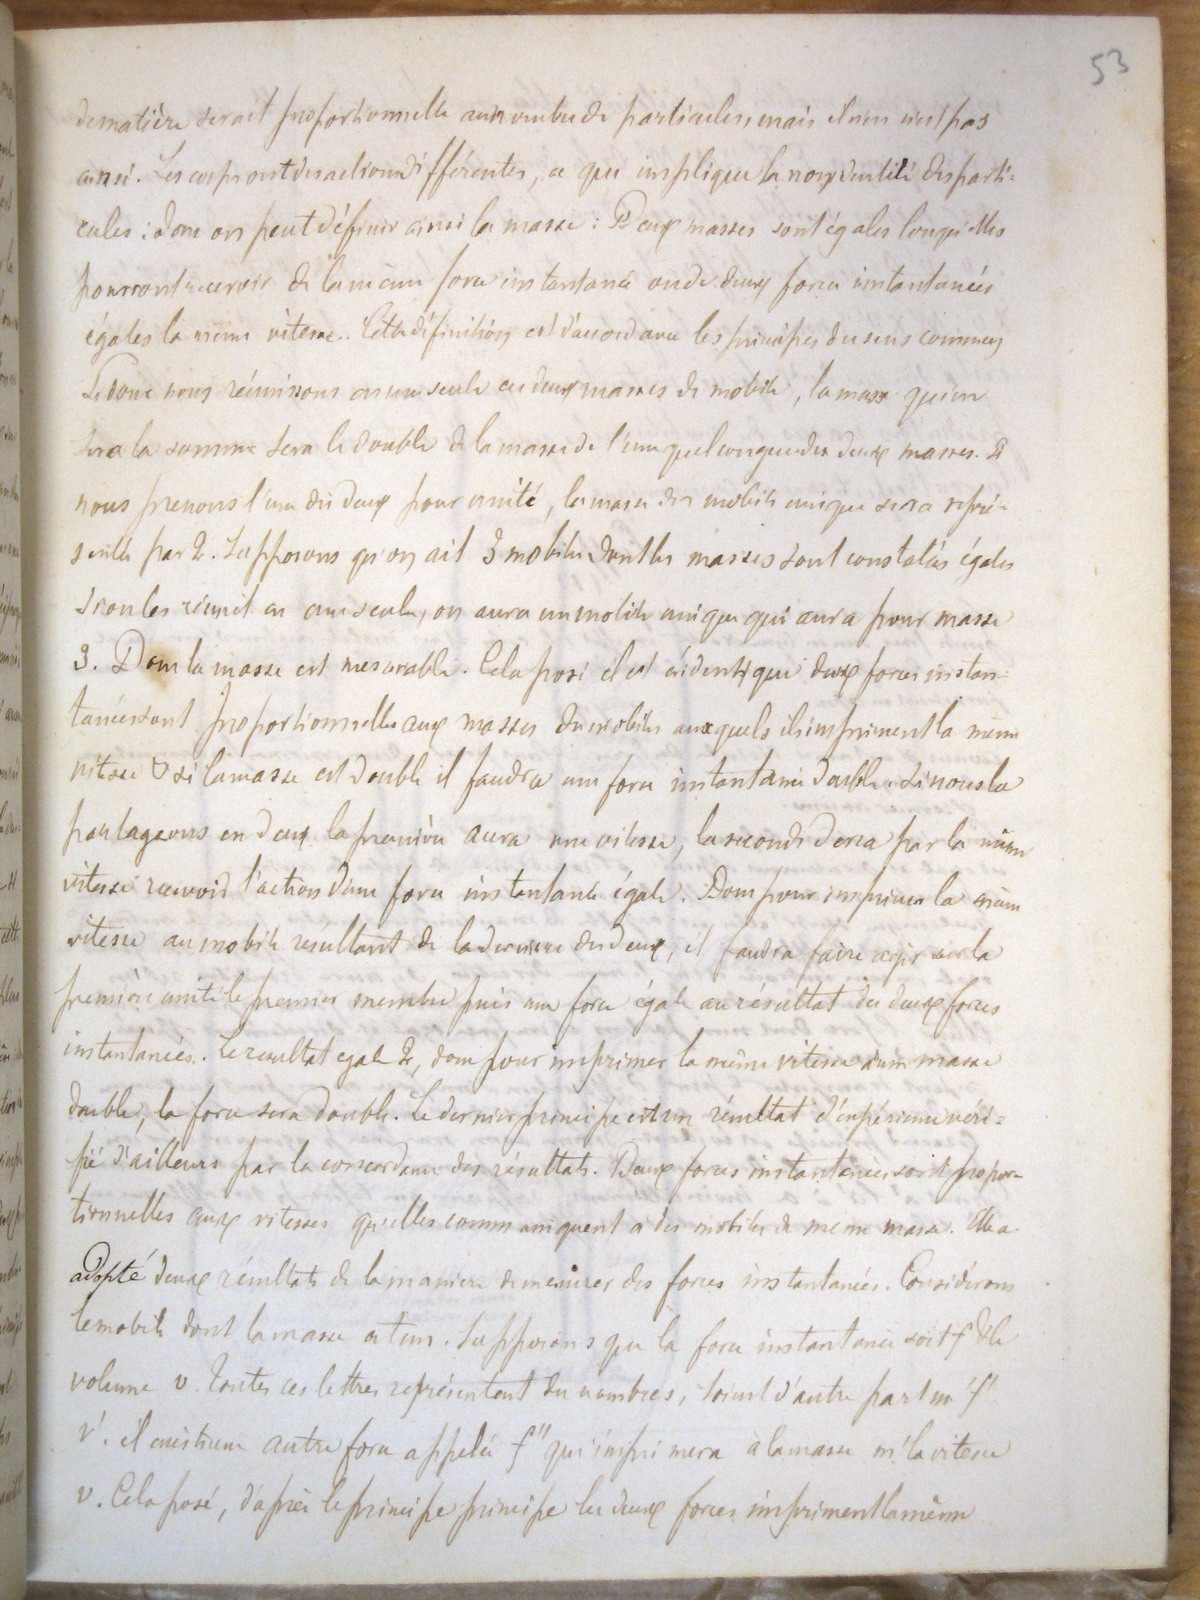 53
de matière serait proportionnelle au nombre de particules mais il n'en est pas
ainsi. Les corps ont des actions différentes, ce qui implique la non identité des parti-
cules : donc on peut définir ainsi la masse : Deux masses sont égales lorsqu'elles
pourront recevoir de la même force instantanée ou de deux forces instantanées
égales la même vitesse. Cette définition est d'accord avec les principes du sens commun
Si donc nous réunissons en une seule ces deux masses de mobile, la masse qui en
sera la somme sera le double de la masse de l'une quelconque des deux masses. Si
nous prenons l'une des deux pour unité, la masse du mobile unique sera repré-
sentée par 2. Supposons qu'on ait 3 mobiles dont les masses sont constatées égales
si on les réunit en une seule, on aura un mobile unique qui aura pour masse
3. Donc la masse est mesurable. Cela posé il est évident que deux forces instan-
tanées sont proportionnelles aux masses des mobiles auxquels ils impriment la même
vitesse si la masse est double il faudra une force instantanée double. Si nous la
partageons en deux la première aura une vitesse, la seconde devra par la même
vitesse recevoir l'action d'une force instantanée égale. Donc pour imprimer la même
vitesse au mobile résultant de la des deux, il faudra faire agir sur la
première unité le premier membre puis une force égale au résultat des deux forces
instantanées. Le résultat égale 2, donc pour imprimer la même vitesse à une masse
double, la force sera double. Le dernier principe est un résultat d'expérience véri-
fié d'ailleurs par la concordance des résultats. Deux forces instantanées sont propor-
tionnelles aux vitesses qu'elles communiquent à des mobiles de même masse. Elle a
adopté deux résultats de la manière de mesurer des forces instantanées. Considérons
le mobile dont la masse est m. Supposons que la force instantanée soit f & le
volume v. Toutes ces lettres représentent des nombres, soient d'autre part m' f'
v'. il existe une autre force appelée f" qui imprimera à la masse m' la vitesse
v. Cela posé, d'après le principe principe les deux forces impriment la même